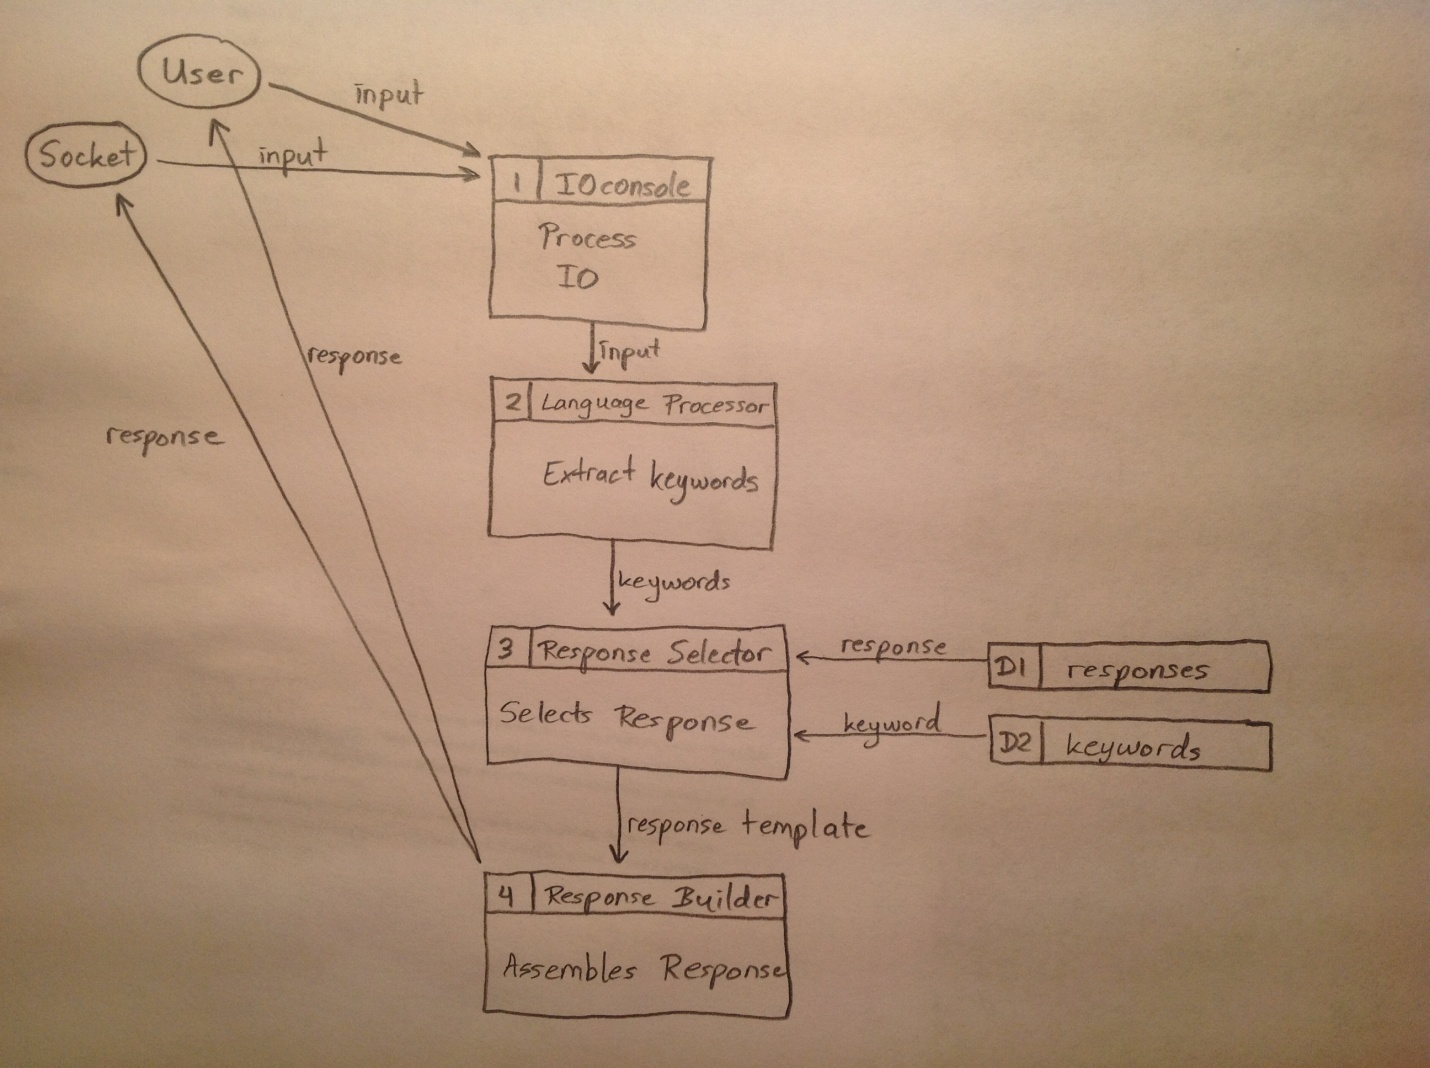 User
input
Socket
input
1 IOconsole
Process
IO
input
response
2 Language Processor
response
Extract keywords
keywords
3 Response Selector
response
D1 responses
Selects Response
keyword
D2 keywords
response template
4 Response Builder
Assembles Response